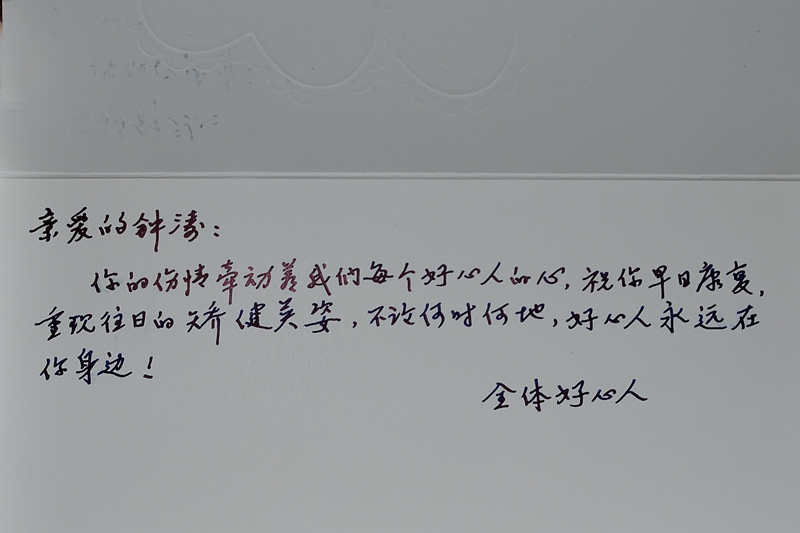 亲爱的钟涛：
你的伤情牵动着我们每个好心人的心，祝你早日康复，
重现往日的矫健英姿，不论何时何地，好心人永远在
你身边！
全体好心人